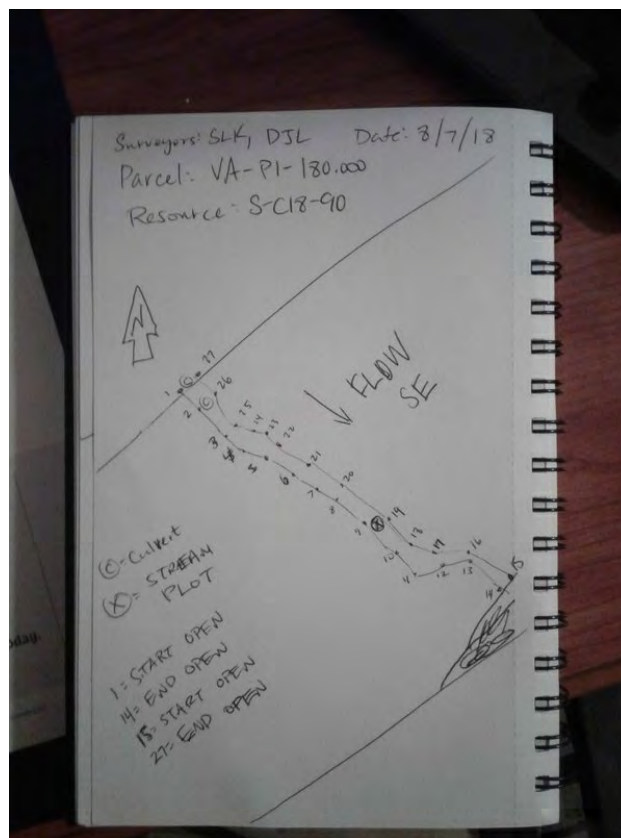 Surveyors: SLK, DJL Date: 8/7/18
Parcel: VA-PI-180.000
Resource: S-C18-90
N
27
C
1
26
C
2
25
24
23
22
3
4
5
21
6
20
7
8
19
9
X
18
10
17
16
11
12
13
15
14
↓ FLOW
SE
C - Culvert
X = STREAM
PLOT
1 = START OPEN
14 = END OPEN
15 = START OPEN
27 = END OPEN
day.